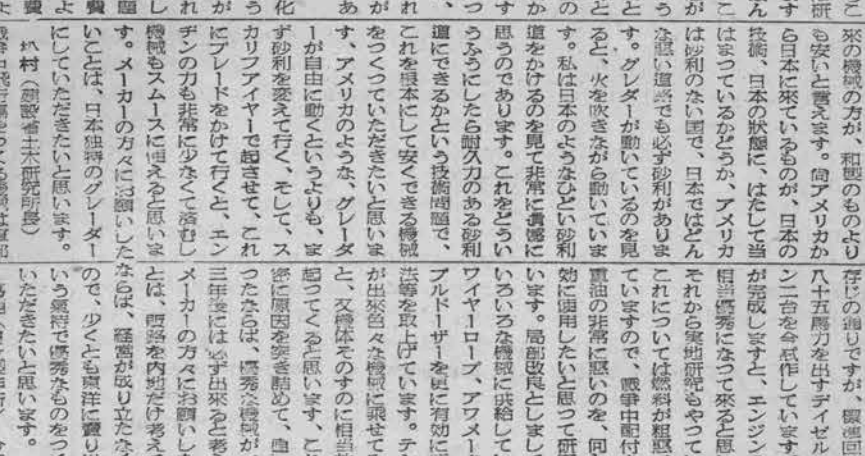 來の機械の方が、和製のものより
も安いと言えます。尙アメリカか
ら日本に來ているものが、日本の
技術、日本の狀態に、はたして当
はまつているかどうか、アメリカ
は砂利のない国で、日本ではどん
な悪い道路でも必ず砂利がありま
す。グレダーが動いているのを見
ると、火を吹きながら動いていま
す。私は日本のようなひどい砂利
道をかけるのを見て非常に遺憾に
思うのであります。これをどうい
うふうにしたら耐久力のある砂利
道にできるかという技術問題で、
これを根本にして安くできる機械
をつくつていただきたいと思いま
す、アメリカのような、グレーダ
ーが自由に動くというよりも、ま
ず砂利を変えて行く、そして、ス
カリフアイヤーで起させて、これ
にブレードをかけて行くと、エン
ヂンの力も非常に少なくて済むし
機械もスムースに使えると思いま
す。メーカーの方々にお願いした
いことは、日本独特のグレーダー
にしていただきたいと思います。
村（建設省土木研究所長）
存じの通りですが、
八十五馬力を出すデイゼル
ン二台を今試作しています
が完成しますと、エンジン
相当優秀になつて來ると思
それから実地研究もやつて
これについては燃料が粗悪
ていますので、戰爭中配付
重油の非常に悪いのを、何
効に使用したいと思つて研
います。局部改良としまし
いろいろな機械に供給して
ワイヤーロープ、アワメー
ブルドーザーを更に有効に
法等を取上げています。テ
が出來色々な機械に乘せて
と、又機体そのすのに相当
起つてくると思います、こ
密に原因を突き詰めて、
つたならば、優秀な機械が
三年後には必ず出來ると考
メーカーの方々にお願いし
とは、販路を内地だけ考え
ならば、経営が成り立たな
ので、少くとも東洋に賣り
いう氣持で優秀なものをつ
いただきたいと思います。